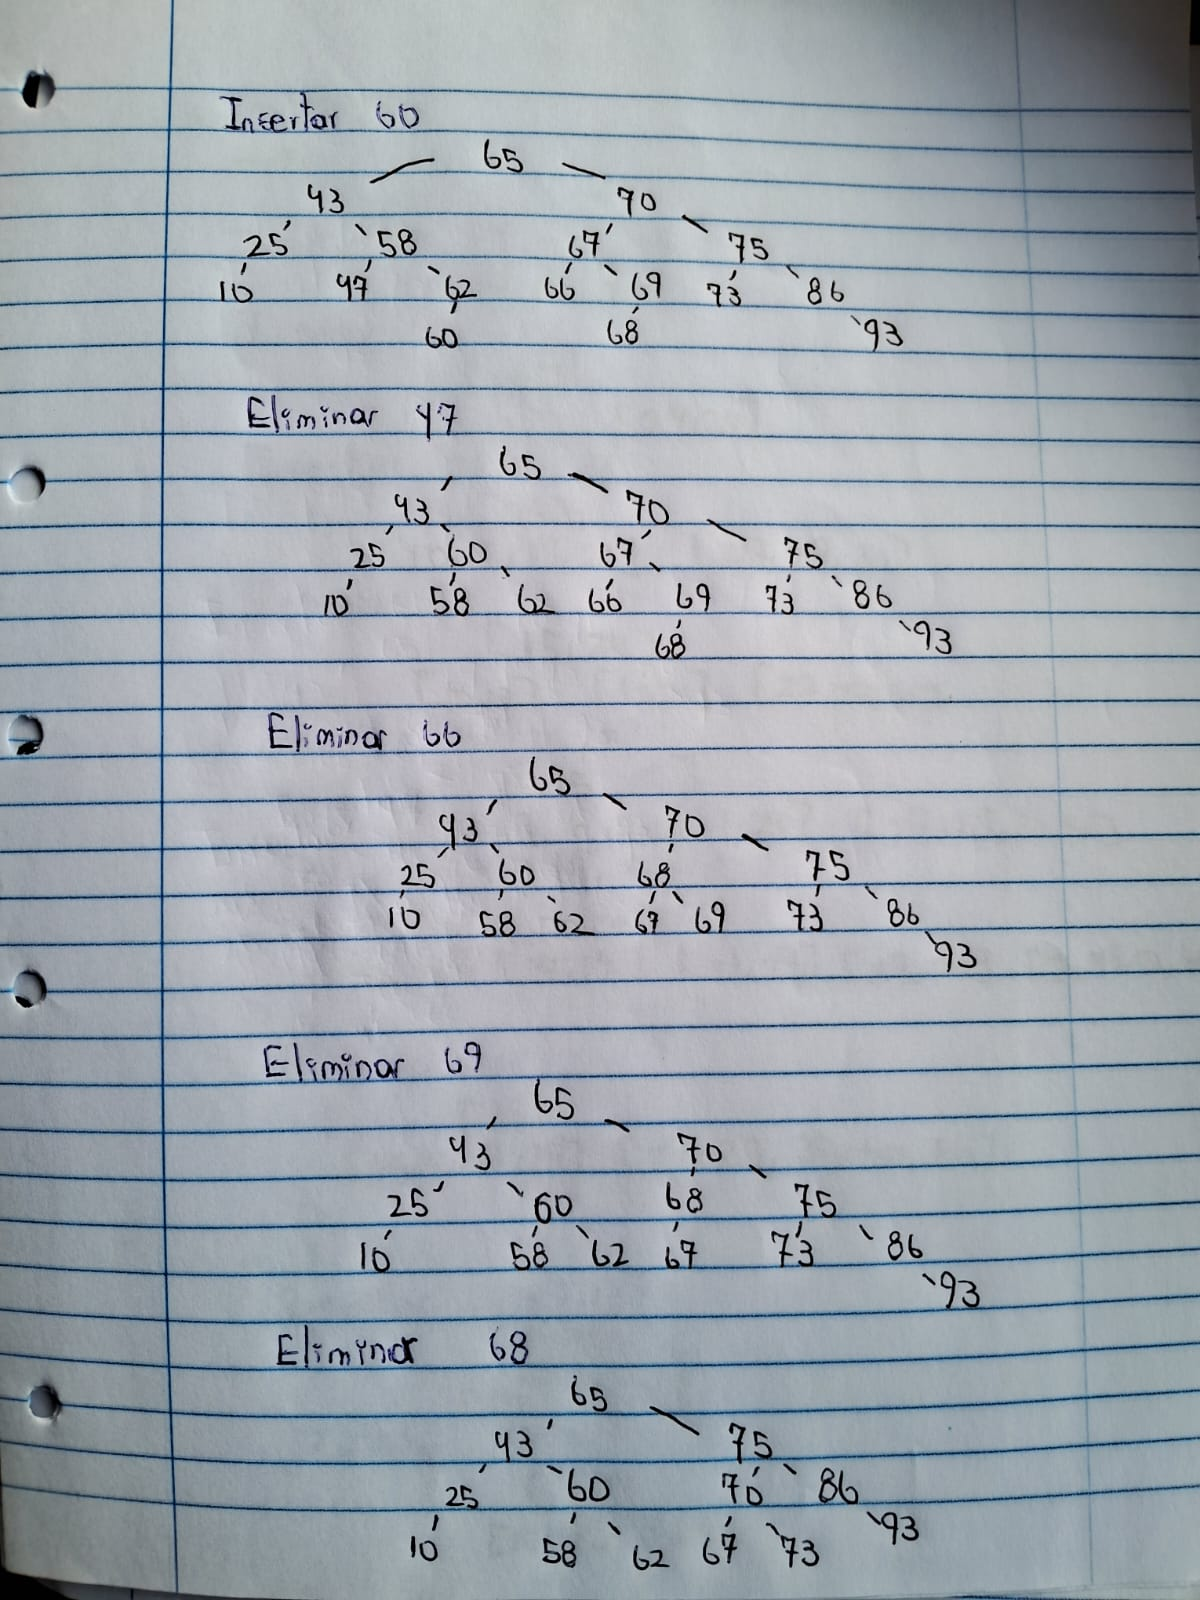 Insertar 60
65
43 70
25 58 67 75
10 47 62 66 69 73 86
60 68 93
Eliminar 47
65
43 70
25 60 67 75
10 58 62 66 69 73 86
68 93
Eliminar 66
65
43 70
25 60 68 75
10 58 62 67 69 73 86
93
Eliminar 69
65
43 70
25 60 68 75
10 58 62 67 73 86
93
Eliminar 68
65
43 75
25 60 70 86
10 58 62 67 73 93